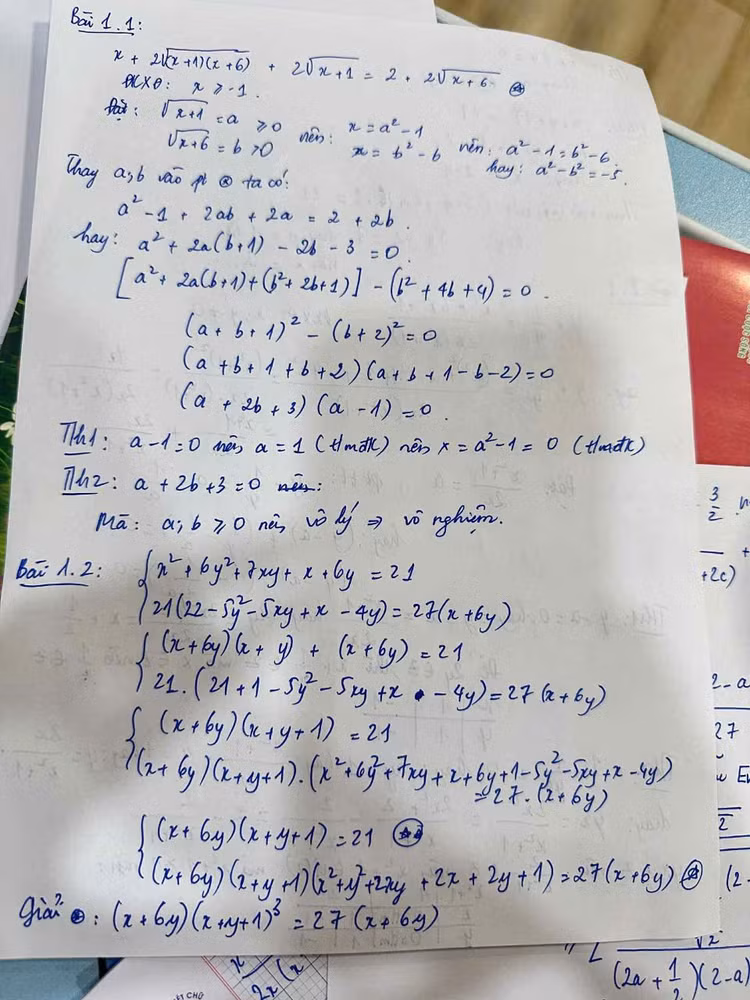 Bài 1.1:
x + 2√(x+1)(x+6) + 2√x+1 = 2 + 2√x+6 ⊛
ĐKXĐ: x ≥ -1.
Đặt: √x+1 = a ≥ 0 nên: x = a² - 1 nên: a² - 1 = b² - 6.
√x+6 = b > 0 x = b² - b hay: a² - b² = -5.
Thay a, b vào pt ⊛ ta có:
a² - 1 + 2ab + 2a = 2 + 2b.
hay: a² + 2a(b+1) - 2b - 3 = 0.
[a² + 2a(b+1) + (b² + 2b + 1)] - (b² + 4b + 4) = 0.
(a + b + 1)² - (b + 2)² = 0
(a + b + 1 + b + 2)(a + b + 1 - b - 2) = 0
(a + 2b + 3)(a - 1) = 0.
Th1: a - 1 = 0 nên a = 1 (t/mđk) nên x = a² - 1 = 0 (t/mđk)
Th2: a + 2b + 3 = 0 nên:
Mà: a; b ≥ 0 nên vô lý ⇒ vô nghiệm.
Bài 1.2: { x² + 6y² + 7xy + x + 6y = 21
21(22 - 5y² - 5xy + x - 4y) = 27(x + 6y)
{ (x + 6y)(x + y) + (x + 6y) = 21
21.(21 + 1 - 5y² - 5xy + x - 4y) = 27(x + 6y)
{ (x + 6y)(x + y + 1) = 21
(x + 6y)(x + y + 1).(x² + 6y² + 7xy + x + 6y + 1 - 5y² - 5xy + x - 4y)
= 27.(x + 6y)
{ (x + 6y)(x + y + 1) = 21
(x + 6y)(x + y + 1)(x² + y² + 2xy + 2x + 2y + 1) = 27(x + 6y) ⊛
Giải ⊛: (x + 6y)(x + y + 1)³ = 27(x + 6y)
3
2
+2c)
2 - a
27
(2 -
√2
(2a + 1/2)(2 - a)